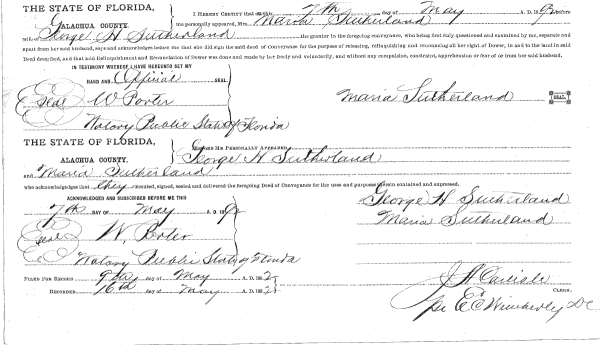 THE STATE OF FLORIDA,
I HEREBY CERTIFY that on this 7th day of May A.D. 1892 before
GALACHUA COUNTY. me personally appeared, Mrs. Maria Sutherland
wife of George H Sutherland the grantor in the foregoing conveyance, who being first duly questioned and examined by me, separate and
apart from her said husband, says and acknowledges before me that she did sign the said deed of Conveyance for the purpose of releasing, relinquishing and renouncing all her right of Dower, in and to the land in said
Deed described, and that said Relinquishment and Renunciation of Dower was done and made by her freely and voluntarily, and without any compulsion, constraint, apprehension or fear of or from her said husband.
IN TESTIMONY WHEREOF, I HAVE HEREUNTO SET MY
HAND AND Official SEAL
Seal W Porter Maria Sutherland SEAL
Notary Public State of Florida
THE STATE OF FLORIDA,
BEFORE ME PERSONALLY APPEARED
ALACHUA COUNTY. George H Sutherland
AND Maria Sutherland
who acknowledges that they executed, signed, sealed and delivered the foregoing Deed of Conveyance for the uses and purposes therein contained and expressed.
ACKNOWLEDGED AND SUBSCRIBED BEFORE ME THIS George H Sutherland
7th DAY OF May A.D. 1892 Maria Sutherland
Seal W. Porter
Notary Public State of Florida
FILED FOR RECORD 9th day of May A. D. 1892 J A Carlisle
RECORDED 16th day of May A. D. 1892 CLERK.
per E C Wimberly DC